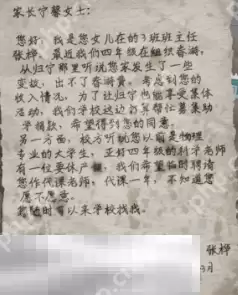 家长宁馨女士:
您好,我是您女儿在的3班班主任
张桦,最近我们四年级在组织春游,
从归宁那里听说您家发生了一些
变故,出不了春游费,考虑到您的
收入情况,为了让归宁也能享受集体
活动,我们学校这边打算帮忙募集助
学捐款,希望得到您的同意。
另一方面,校方听说您以前是物理
专业的大学生,正好四年级的科学老师
有一位要休产假,我们希望临时聘请
您作代课老师,代课一年,不知道您
愿不愿意。
您随时可以来学校找我。
张桦
月